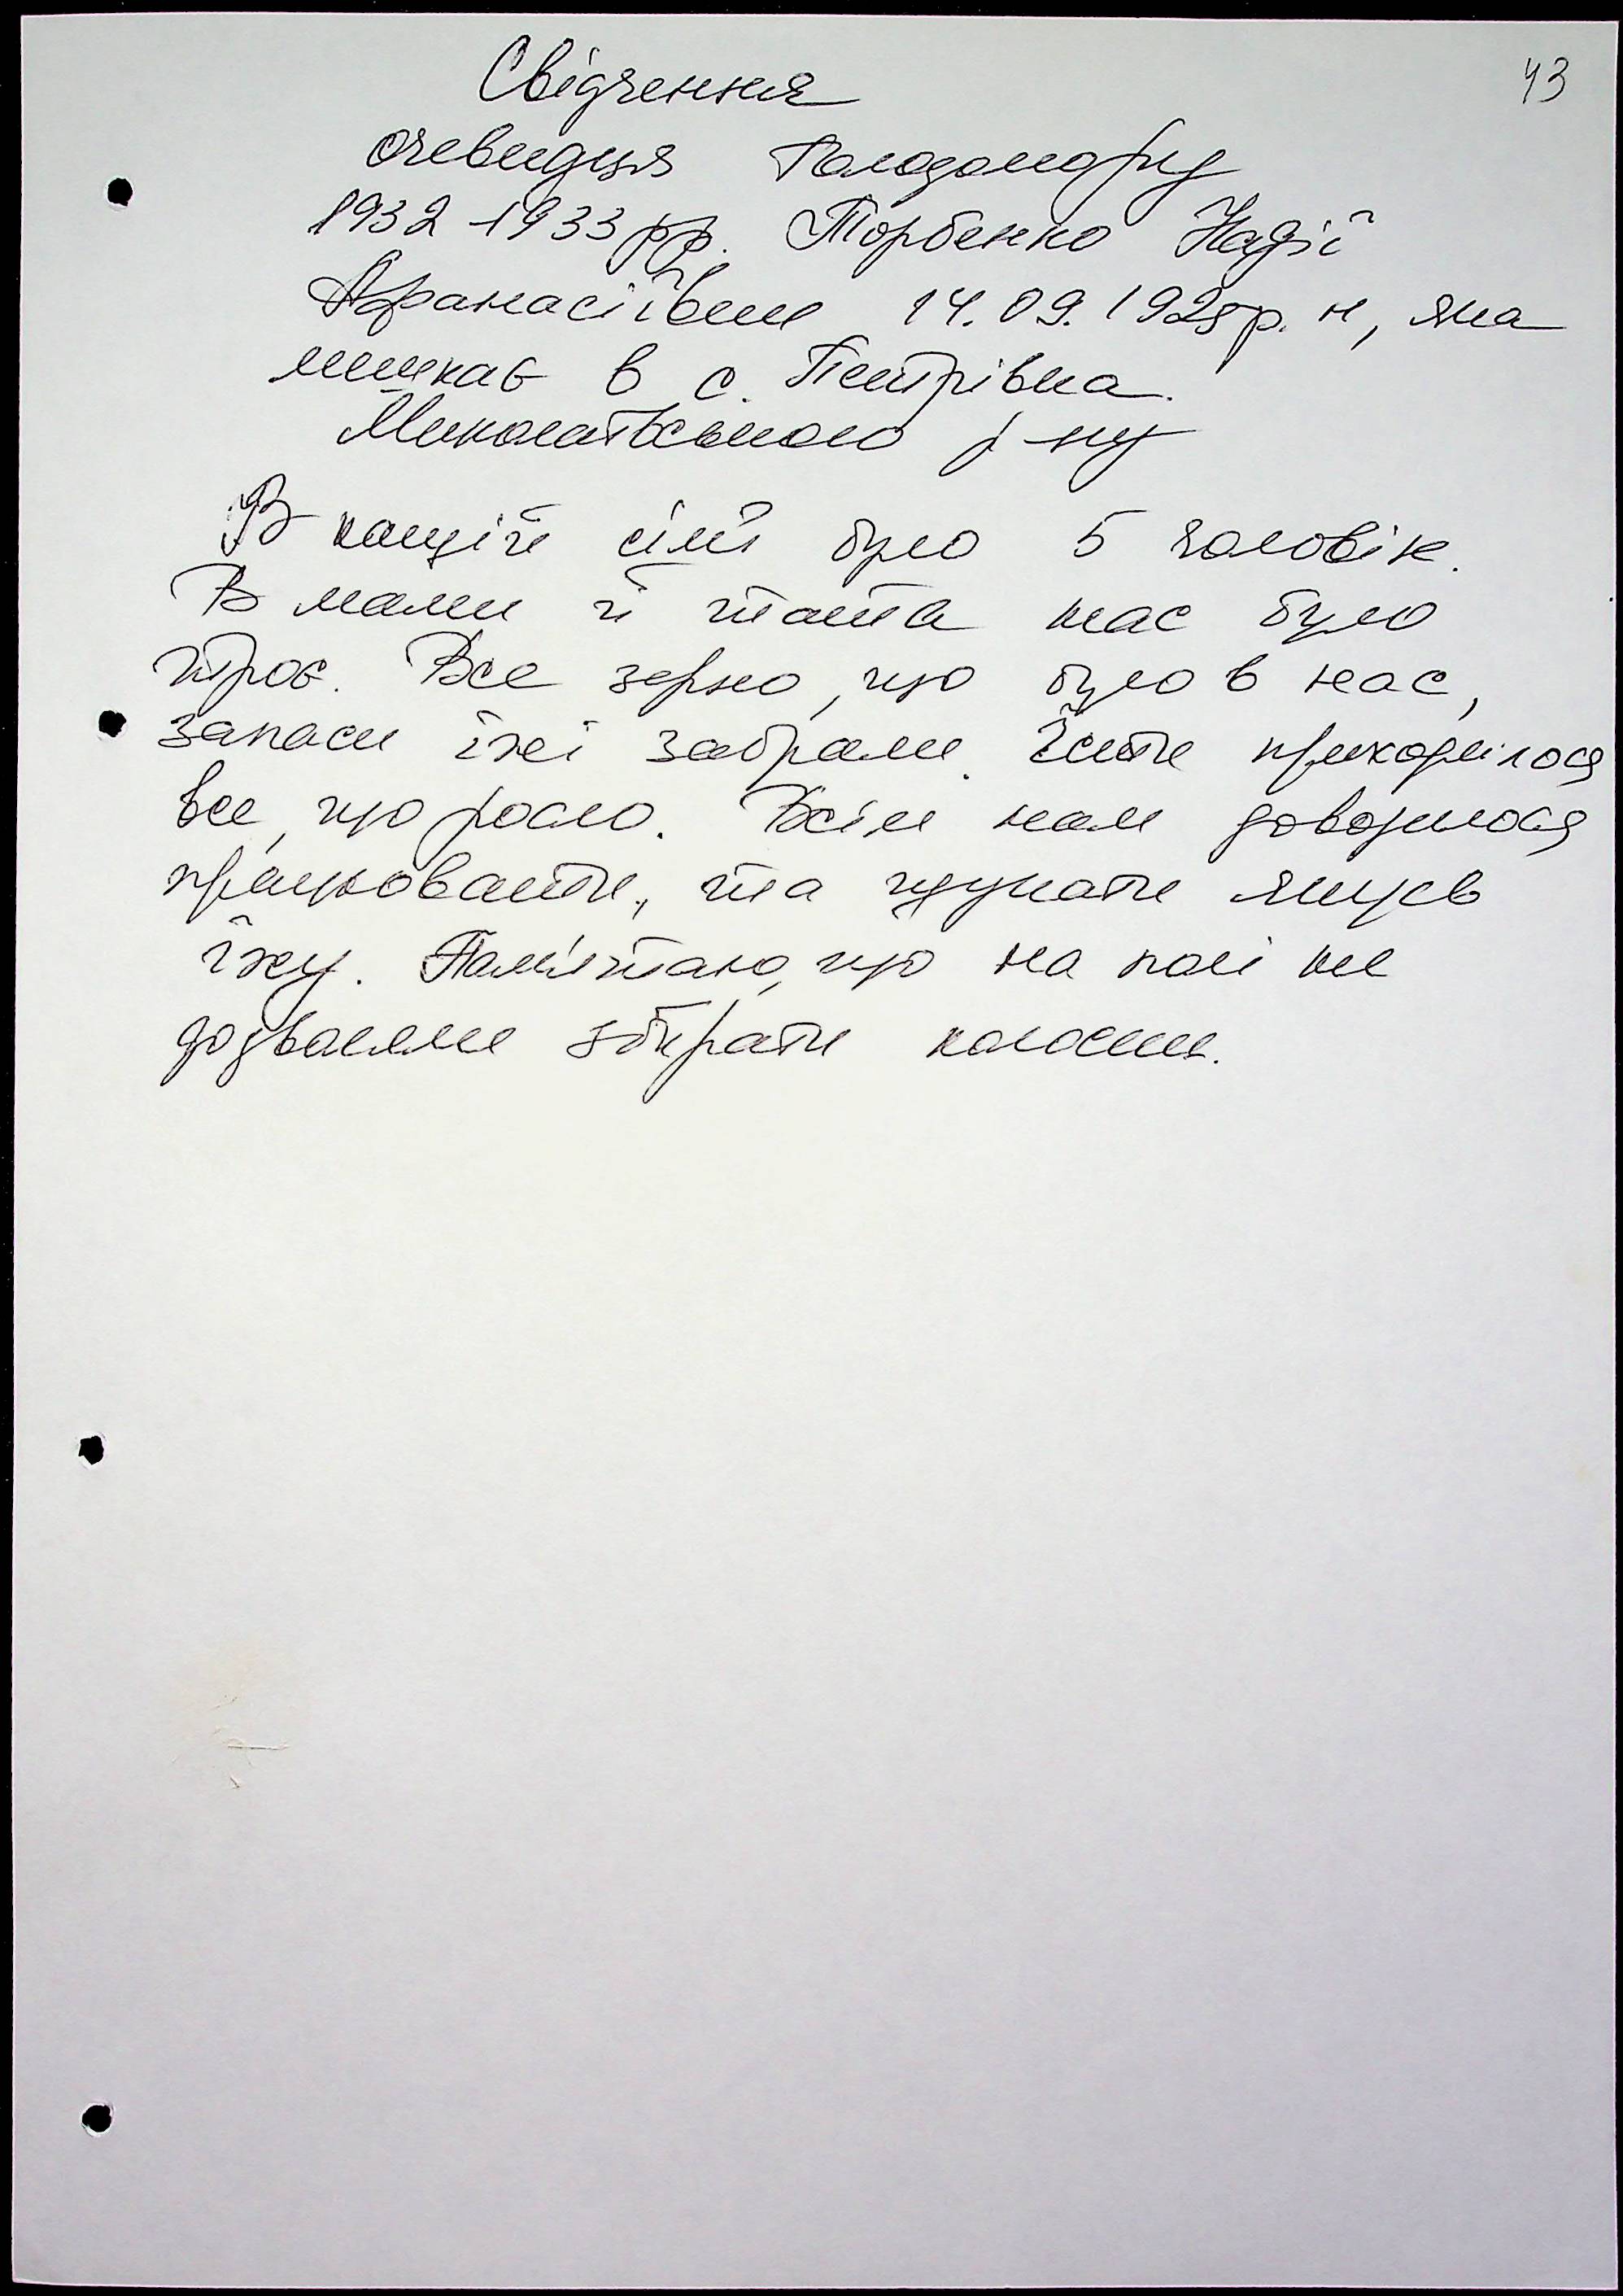 43
Свідчення
очевидця Голодомору
1932-1933 рр. Торбенко Надії
Афанасіївни 14.09.1925 р. н, яка
мешкає в с. Петрівка.
Миколаївського р-ну
В нашій сім'ї було 5 чоловік.
В мами й тата нас було
троє. Все зерно, що було в нас,
запаси їжі забрали. Їсти приходилося
все, що росло. Всім нам доводилося
працювати, та шукати якусь
їжу. Пам'ятаю, що на полі не
дозволяли збирати колоски.